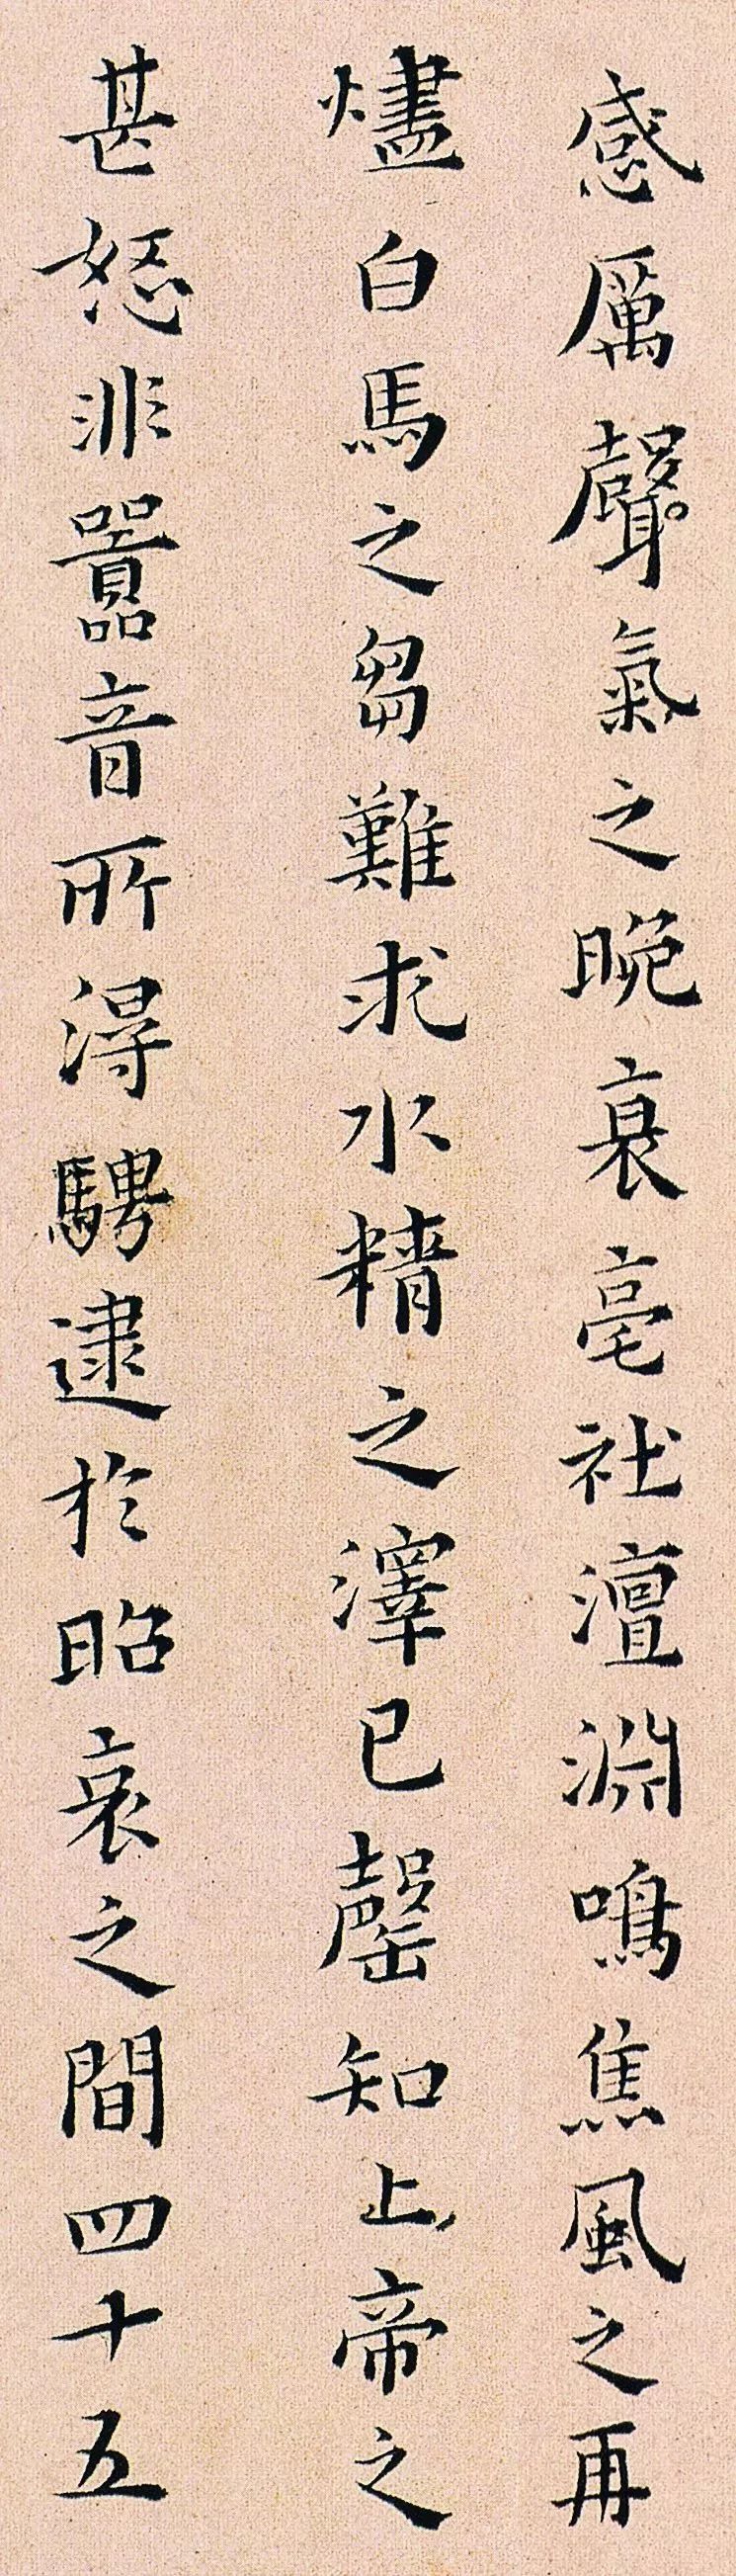 感厲聲氣之晚衰亳社澶淵鳴焦風之再
燼白馬之芻難求水精之澤已罄知上帝之
甚怒非嚚音所得騁逮於昭哀之間四十五